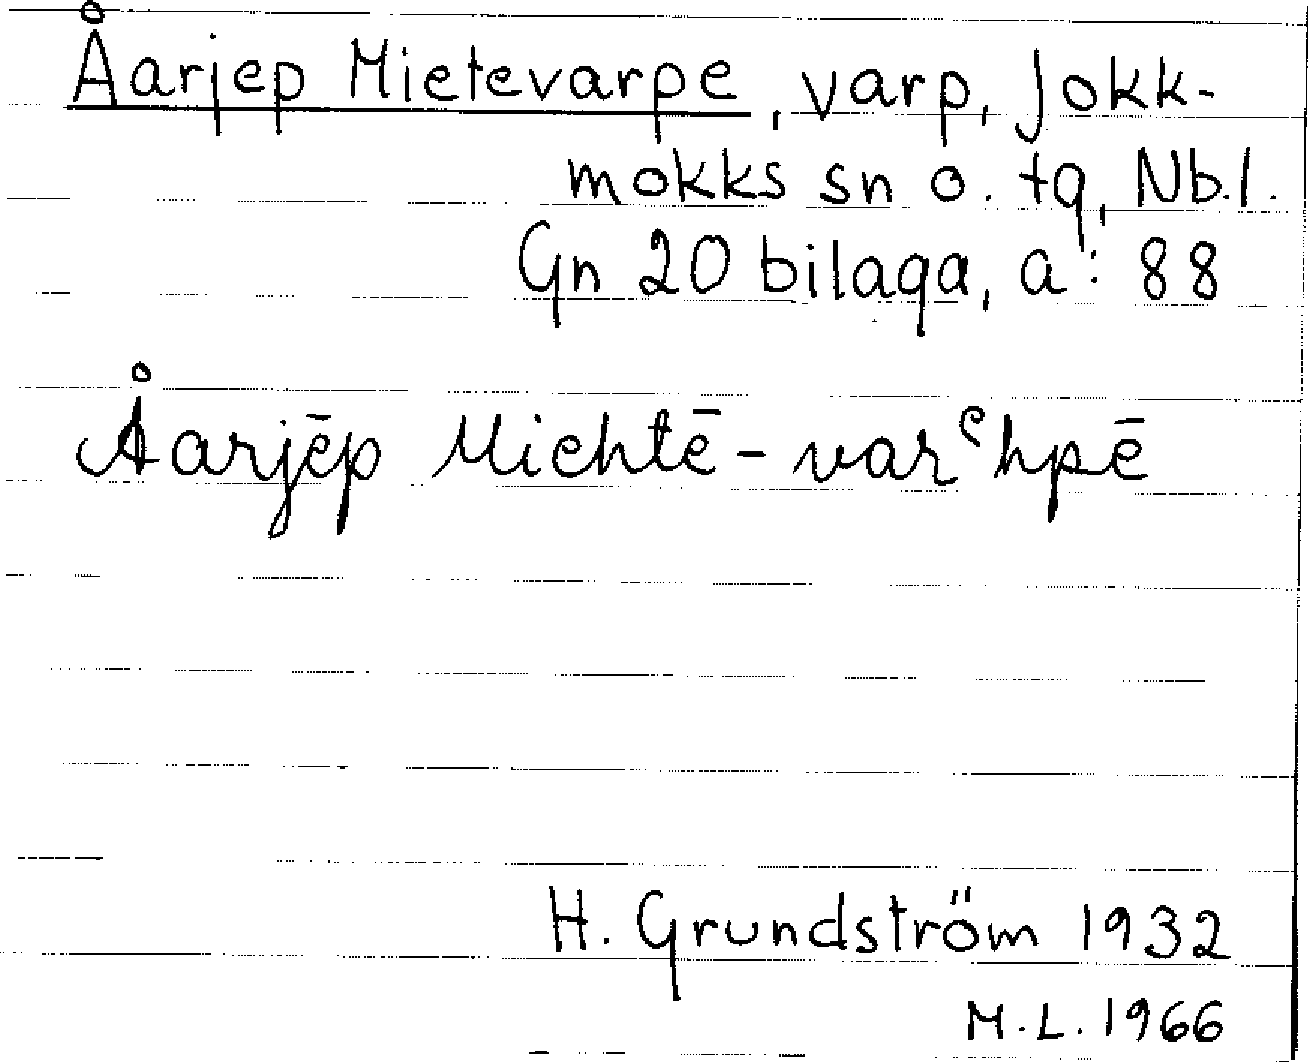 Åarjep Mietevarpe, varp, Jokk-
mokks sn o. tg, Nb.l.
Gn 20 bilaga, a: 88
Åarjēp Miehtē-varͨhpē
H. Grundström 1932
M.L. 1966